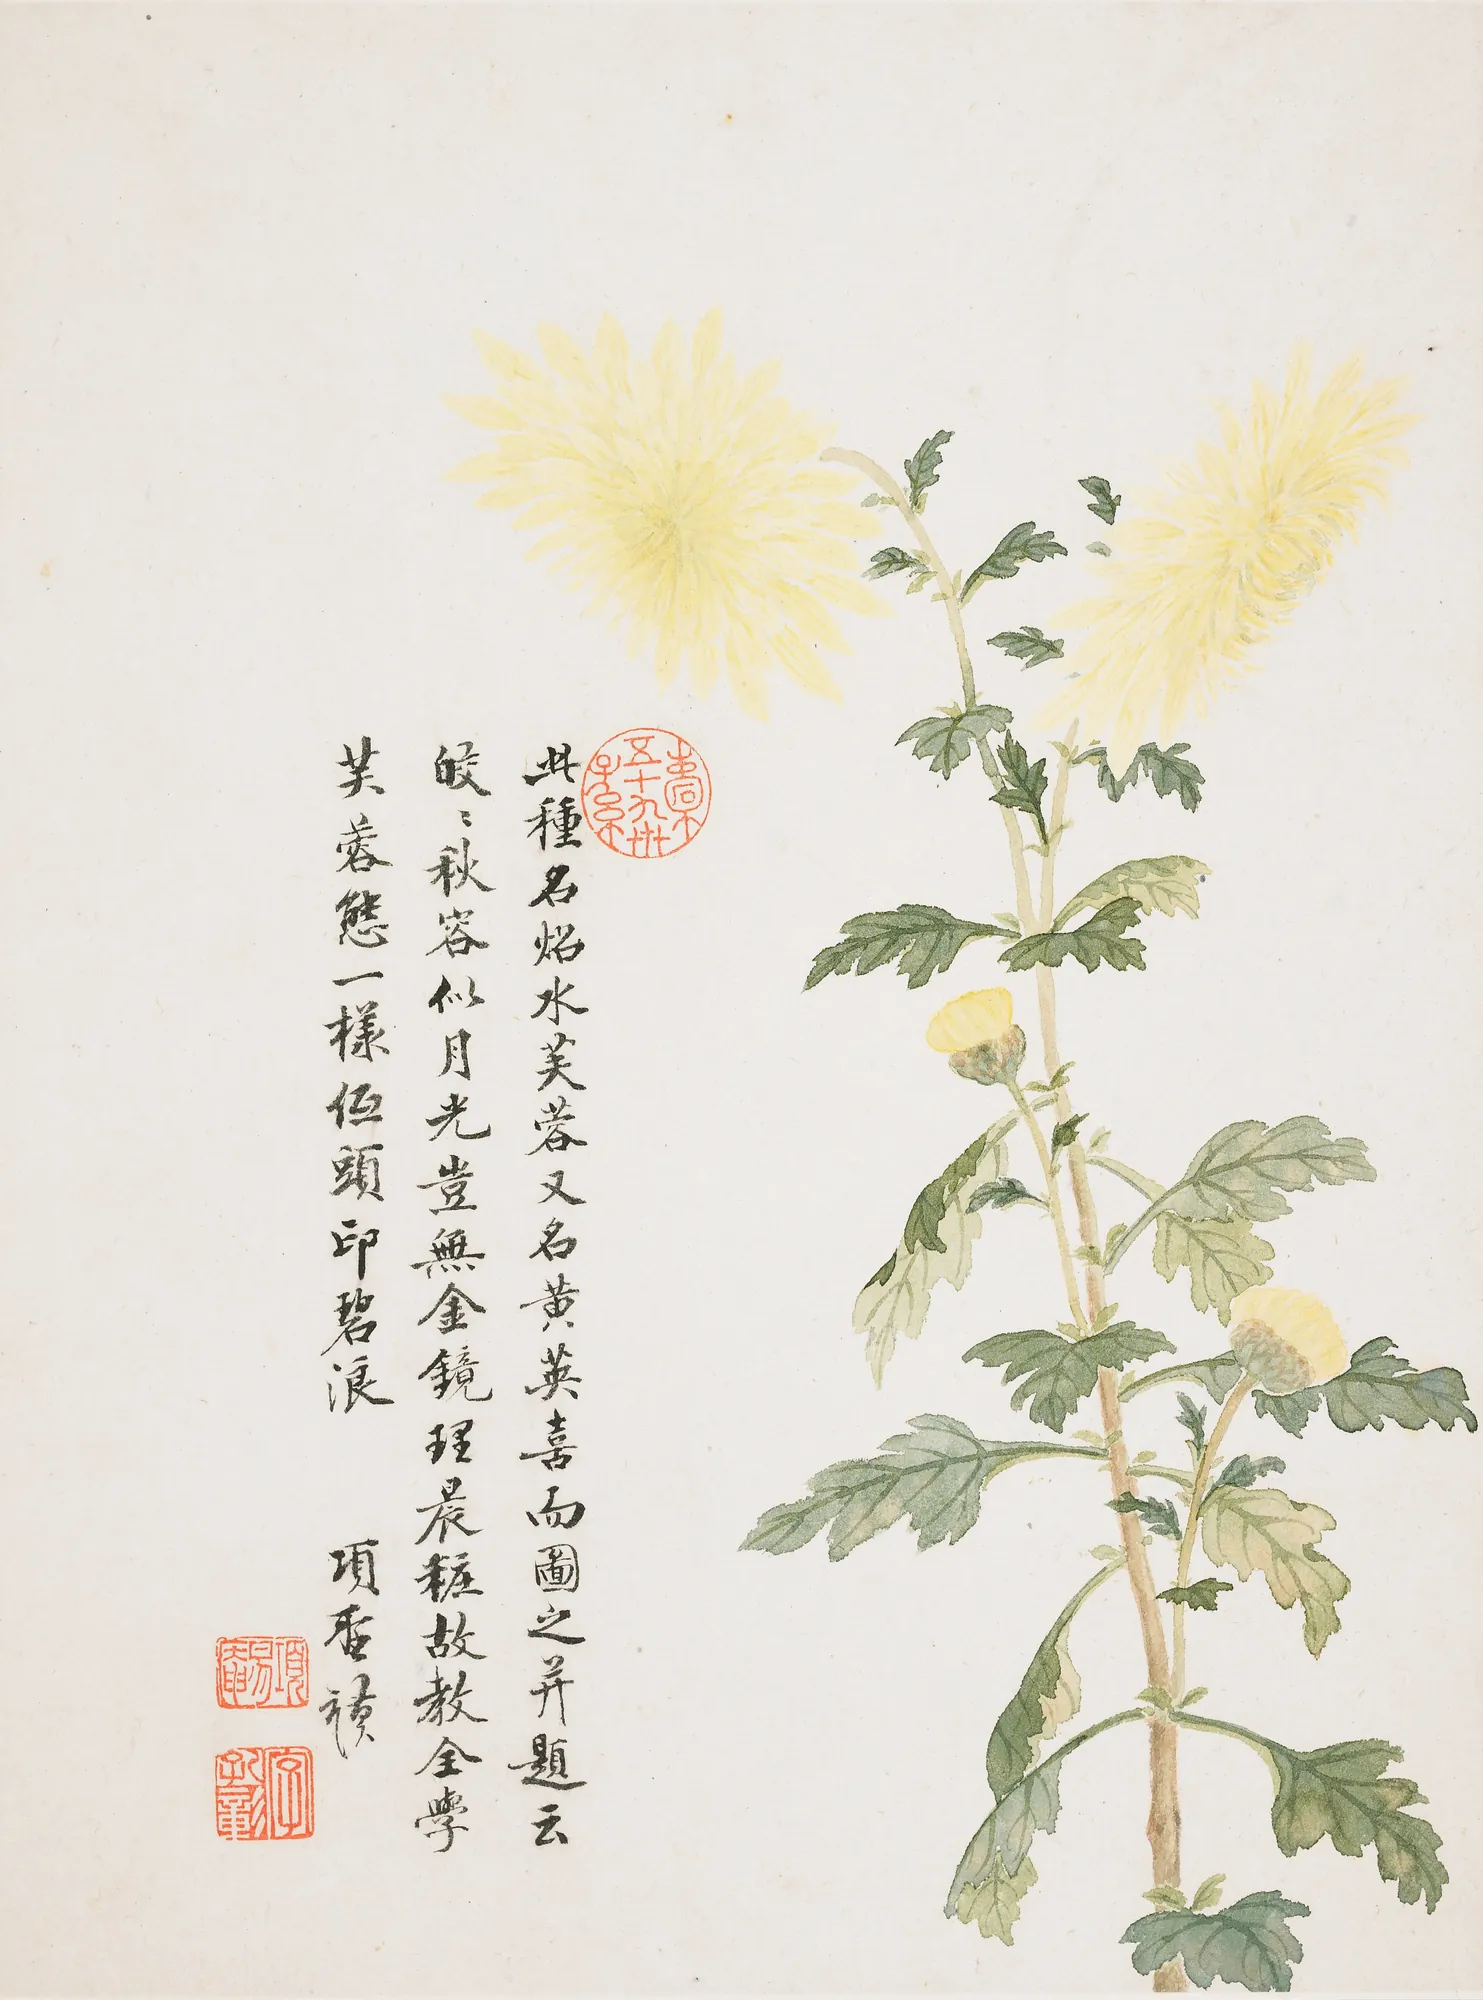 此種名炤水芙蓉又名黃英喜而圖之并題云
皎〻秋容似月光豈無金鏡理晨粧故教全學
芙蓉態一樣低頭印碧浪
項聖謨
項易菴
字孔彰